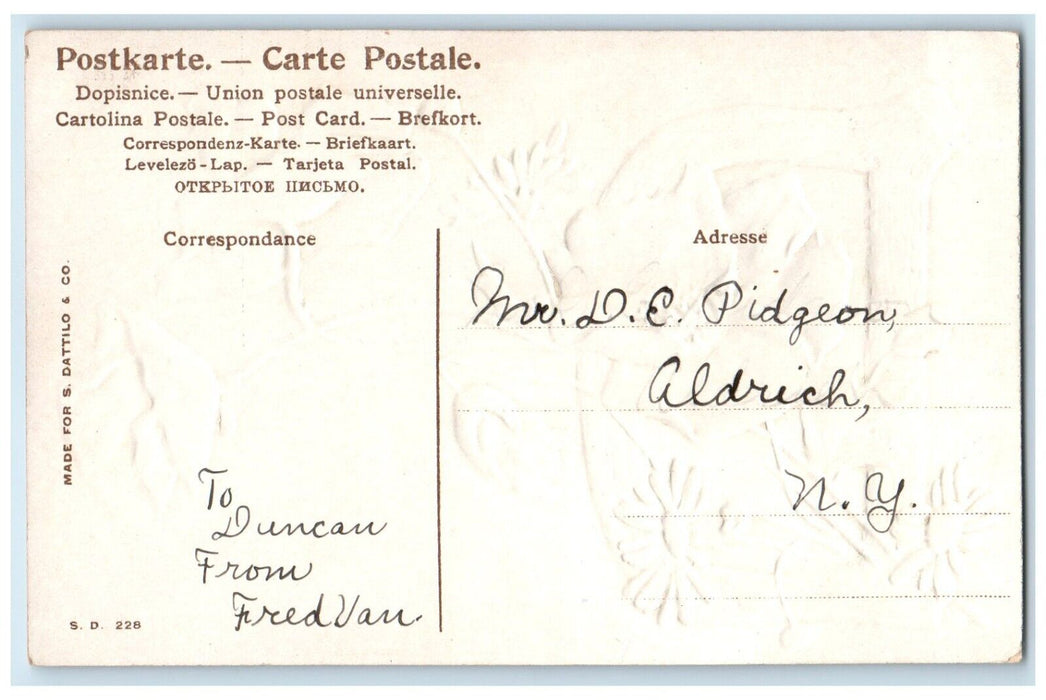 Postkarte. — Carte Postale.
Dopisnice. — Union postale universelle.
Cartolina Postale. — Post Card. — Brefkort.
Correspondenz-Karte. — Briefkaart.
Levelezö-Lap. — Tarjeta Postal.
ОТКРЫТОЕ ПИСЬМО.
Correspondance
Adresse
MADE FOR S. DATTILO & CO.
Mr. D. E. Pidgeon,
Aldrich,
N. Y.
To
Duncan
From
Fred Van.
S. D. 228